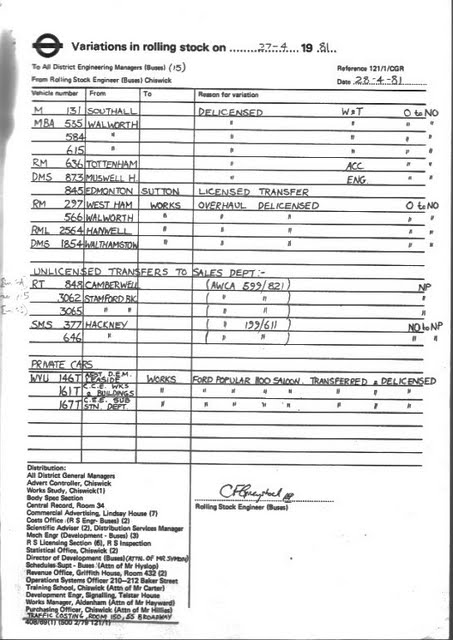 Variations in rolling stock on 27-4 1981
To All District Engineering Managers (Buses) (15) Reference 121/1/CGR
From Rolling Stock Engineer (Buses) Chiswick Date 28-4-81
Vehicle number From To Reason for variation
M 131 SOUTHALL DELICENSED W&T O to NO
MBA 535 WALWORTH " " " "
584 " " " " "
615 " " " " "
RM 636 TOTTENHAM " ACC. " "
DMS 873 MUSWELL H. " ENG. " "
845 EDMONTON SUTTON LICENSED TRANSFER
RM 297 WEST HAM WORKS OVERHAUL DELICENSED O to NO
566 WALWORTH " " " " "
RML 2564 HANWELL " " " " "
DMS 1854 WALTHAMSTOW " " " " "
UNLICENSED TRANSFERS TO SALES DEPT:-
RT 848 CAMBERWELL (AWCA 599/821) NP
3062 STAMFORD BK. ( " " ) "
3065 " " ( " " ) "
SMS 377 HACKNEY ( " 199/611 ) NO to NP
646 " ( " " ) " "
PRIVATE CARS
WYU 146T ASST. D.E.M. LEASIDE WORKS FORD POPULAR 1100 SALOON. TRANSFERRED & DELICENSED
161T C.C.E. WKS & BUILDINGS " " " " " " " "
167T C.E.E. SUB STN. DEPT. " " " " " " " "
Distribution:
All District General Managers
Advert Controller, Chiswick
Works Study, Chiswick(1)
Body Spec Section
Central Record, Room 34
Commercial Advertising, Lindsay House (7)
Costs Office (R S Engr- Buses) (2)
Scientific Adviser (2), Distribution Services Manager
Mech Engr (Development - Buses) (3)
R S Licensing Section (6), R S Inspection
Statistical Office, Chiswick (2)
Director of Development (Buses) (ATTN. OF MR. SYMON)
Schedules Supt - Buses (Attn of Mr Hyslop)
Revenue Office, Griffith House, Room 432 (2)
Operations Systems Officer 210-212 Baker Street
Training School, Chiswick (Attn of Mr Carter)
Development Engr, Signalling, Telstar House
Works Manager, Aldenham (Attn of Mr Hayward)
Purchasing Officer, Chiswick (Attn of Mr Hillies)
TRAFFIC COSTING, ROOM 150, 55 BROADWAY
408/69(1) (500 2/79 121/1)
Rolling Stock Engineer (Buses)